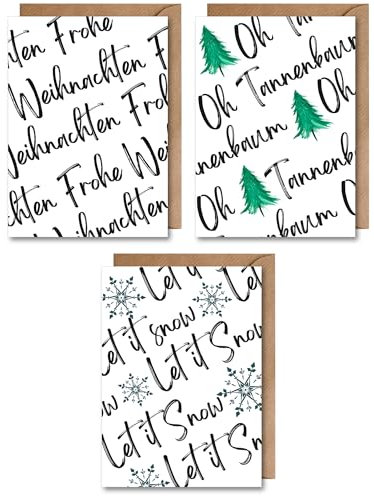 Frohe
Weihnachten Frohe
Weihnachten Frohe Weih
hten Frohe
Weihnachten
Oh Tannenbaum
Oh
nenbaum
Oh Tannenbaum
Oh
Let it
Let it Snow
Let it Snow
Let it Snow
Let it Snow